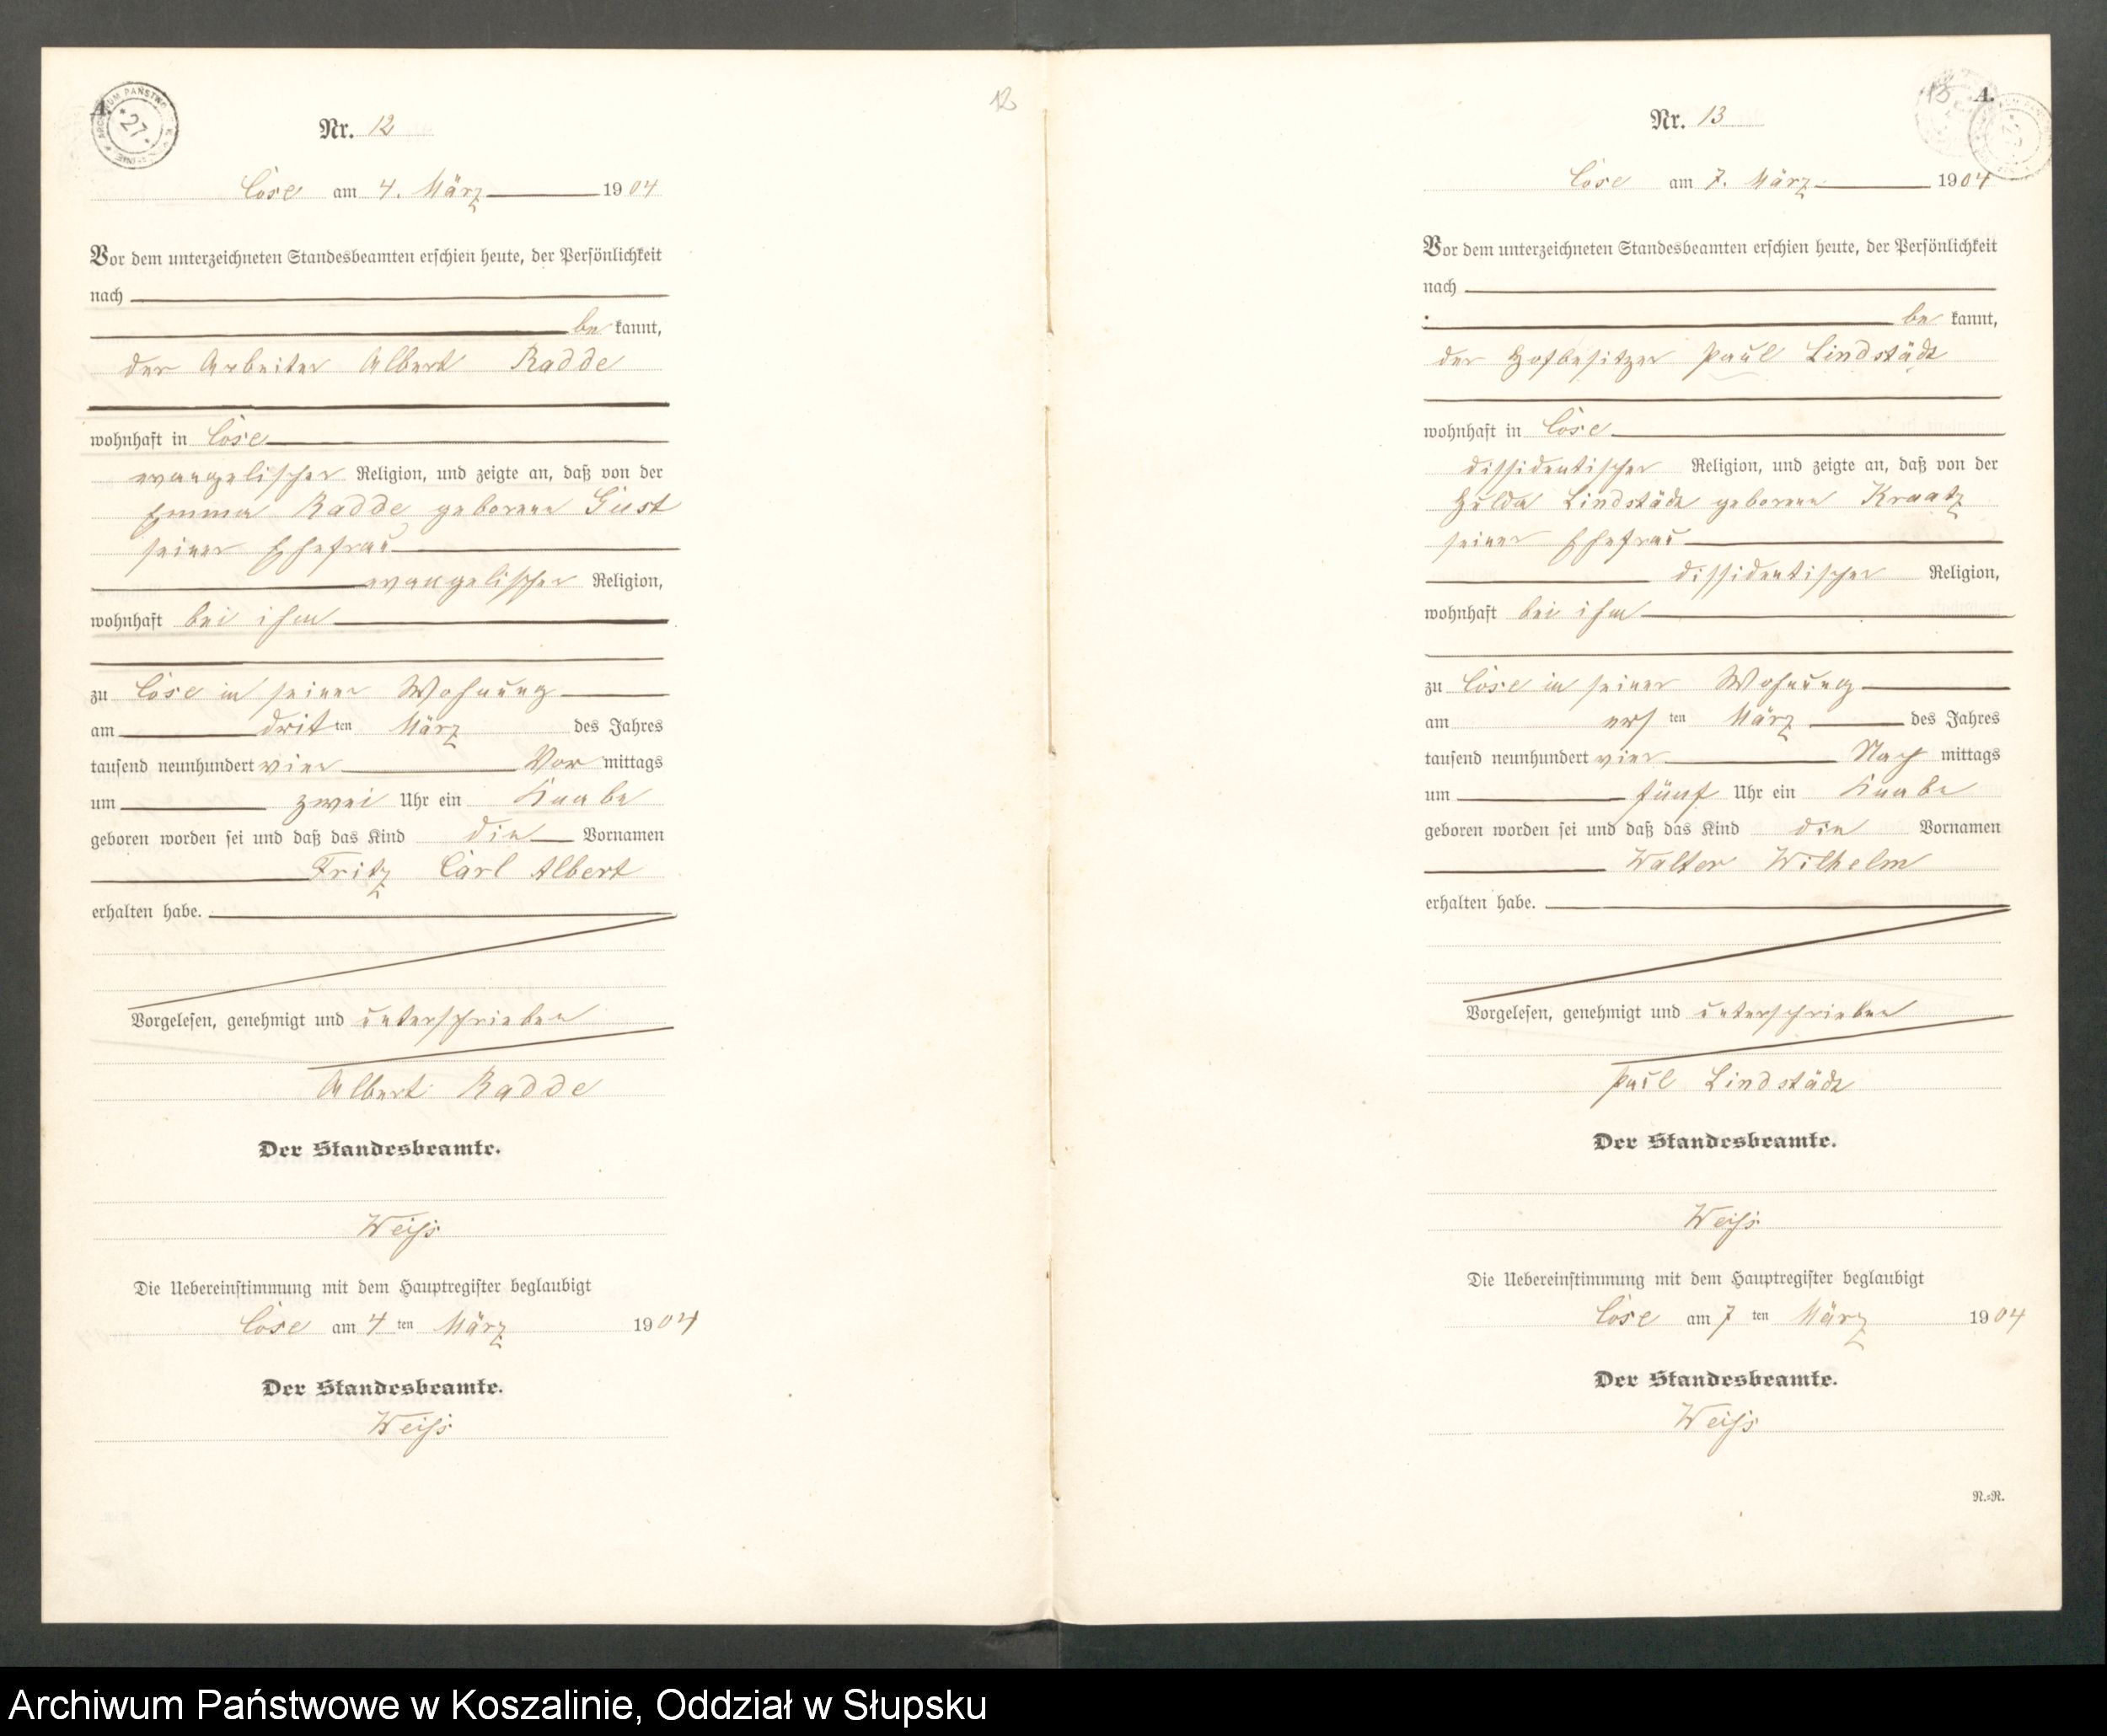 A.
ARCHIWUM PAŃSTWO
27
Nr. 12
Cose am 4. März 1904
Vor dem unterzeichneten Standesbeamten erschien heute, der Persönlichkeit
nach
be kannt,
der Arbeiter Albert Radde
wohnhaft in Cose
evangelischer Religion, und zeigte an, daß von der
Emma Radde geborene Gust
seiner Ehefrau
evangelischer Religion,
wohnhaft bei ihm
zu Cose in seiner Wohnung
am dritten März des Jahres
tausend neunhundert vier Vor mittags
um zwei Uhr ein Knabe
geboren worden sei und daß das Kind die Vornamen
Fritz Carl Albert
erhalten habe.
Vorgelesen, genehmigt und unterschrieben
Albert Radde
Der Standesbeamte.
Weiß
Die Uebereinstimmung mit dem Hauptregister beglaubigt
Cose am 4 ten März 1904
Der Standesbeamte.
Weiß
12
13
A.
Nr. 13
Cose am 7. März 1904
Vor dem unterzeichneten Standesbeamten erschien heute, der Persönlichkeit
nach
be kannt,
der Hofbesitzer Paul Lindstädt
wohnhaft in Cose
dissidentischer Religion, und zeigte an, daß von der
Hulda Lindstädt geborene Kraatz
seiner Ehefrau
dissidentischer Religion,
wohnhaft bei ihm
zu Cose in seiner Wohnung
am ersten März des Jahres
tausend neunhundert vier Nach mittags
um fünf Uhr ein Knabe
geboren worden sei und daß das Kind die Vornamen
Walter Wilhelm
erhalten habe.
Vorgelesen, genehmigt und unterschrieben
Paul Lindstädt
Der Standesbeamte.
Weiß
Die Uebereinstimmung mit dem Hauptregister beglaubigt
Cose am 7 ten März 1904
Der Standesbeamte.
Weiß
N.=R.
Archiwum Państwowe w Koszalinie, Oddział w Słupsku